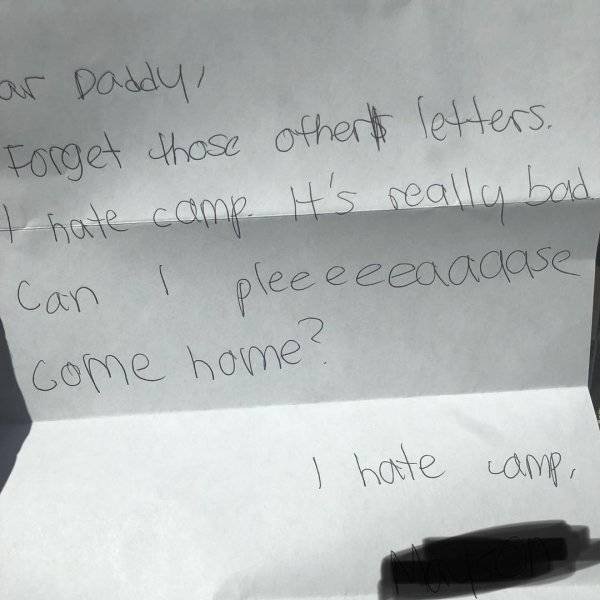 ar Daddy,
Forget those other letters.
I hate camp. It's really bad
Can I pleeeeeeaaaase
come home?
I hate camp,